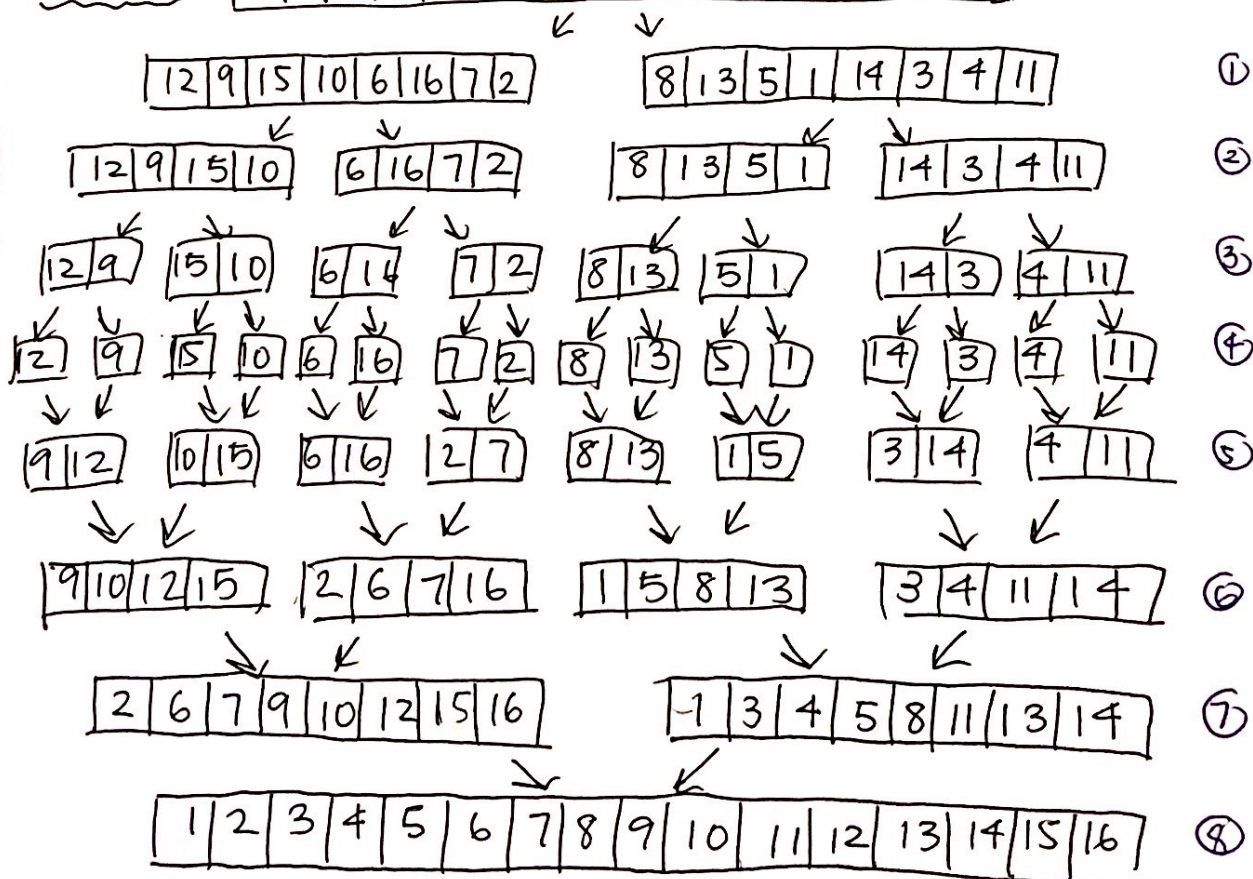 12 9 15 10 6 16 7 2 8 13 5 1 14 3 4 11 ①
12 9 15 10 6 16 7 2 8 13 5 1 14 3 4 11 ②
12 9 15 10 6 16 7 2 8 13 5 1 14 3 4 11 ③
12 9 15 10 6 16 7 2 8 13 5 1 14 3 4 11 ④
9 12 10 15 6 16 2 7 8 13 1 5 3 14 4 11 ⑤
9 10 12 15 2 6 7 16 1 5 8 13 3 4 11 14 ⑥
2 6 7 9 10 12 15 16 1 3 4 5 8 11 13 14 ⑦
1 2 3 4 5 6 7 8 9 10 11 12 13 14 15 16 ⑧